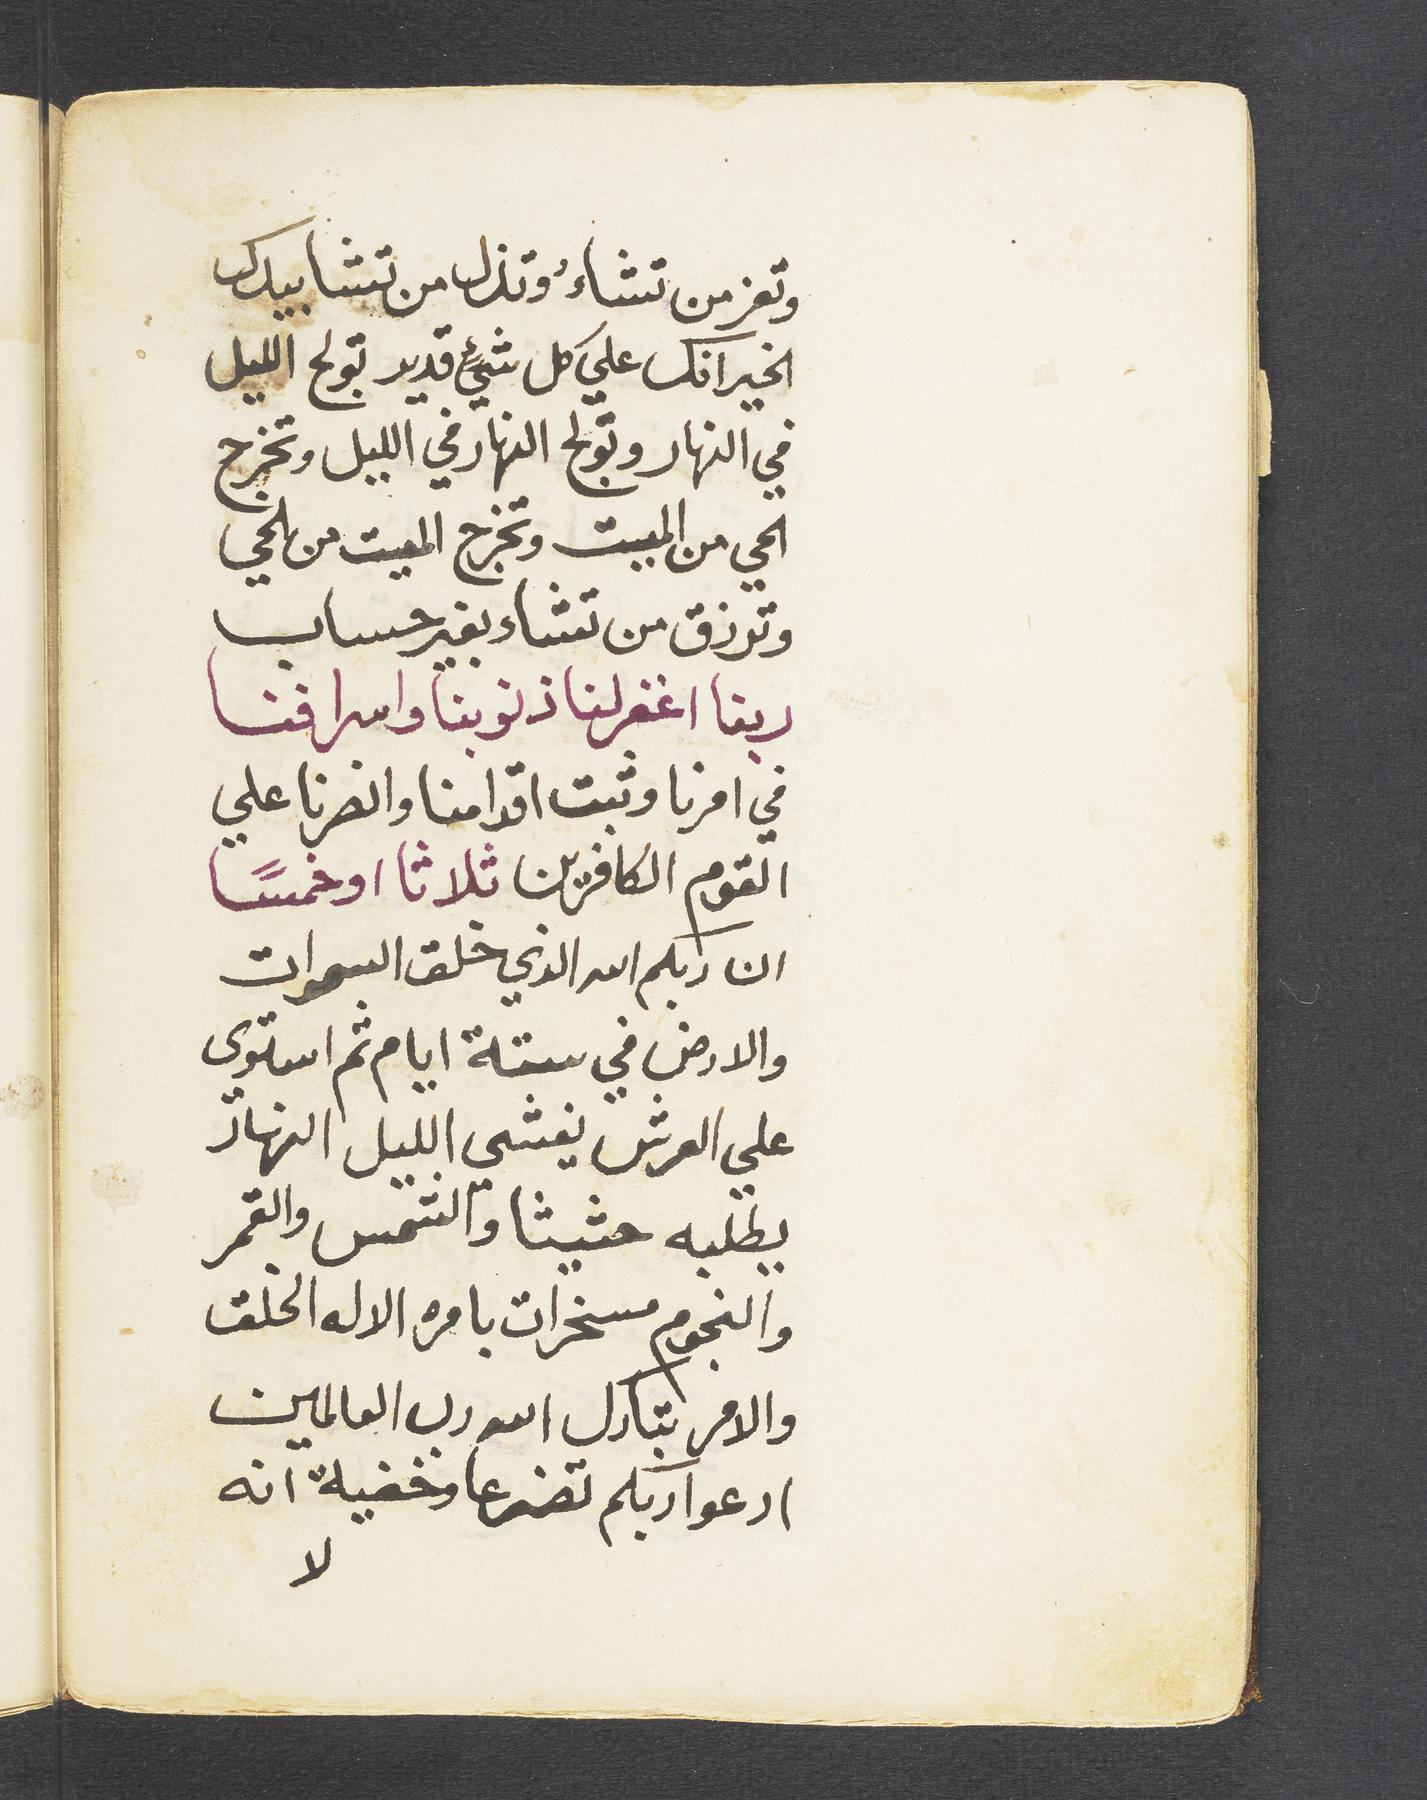 وتعز من تشاءُ وتذل من تشا بيدك
الخير انك علي كل شيءٍ قدير تولج الليل
في النهار وتولج النهار في الليل وتخرج
الحي من الميت وتخرج الميت من الحي
وترزق من تشاء بغير حساب
ربنا اغفر لنا ذنوبنا واسرافنا
في امرنا وثبت اقدامنا وانصرنا علي
القوم الكافرين ثلاثا او خمسًا
ان ربكم الله الذي خلق السموات
والارض في ستة ايام ثم استوى
علي العرش يغشي الليل النهار
يطلبه حثيثا والشمس والقمر
والنجوم مسخرات بامره الا له الخلق
والامر تبارك الله رب العالمين
ادعوا ربكم تضرعا وخفية انه
لا